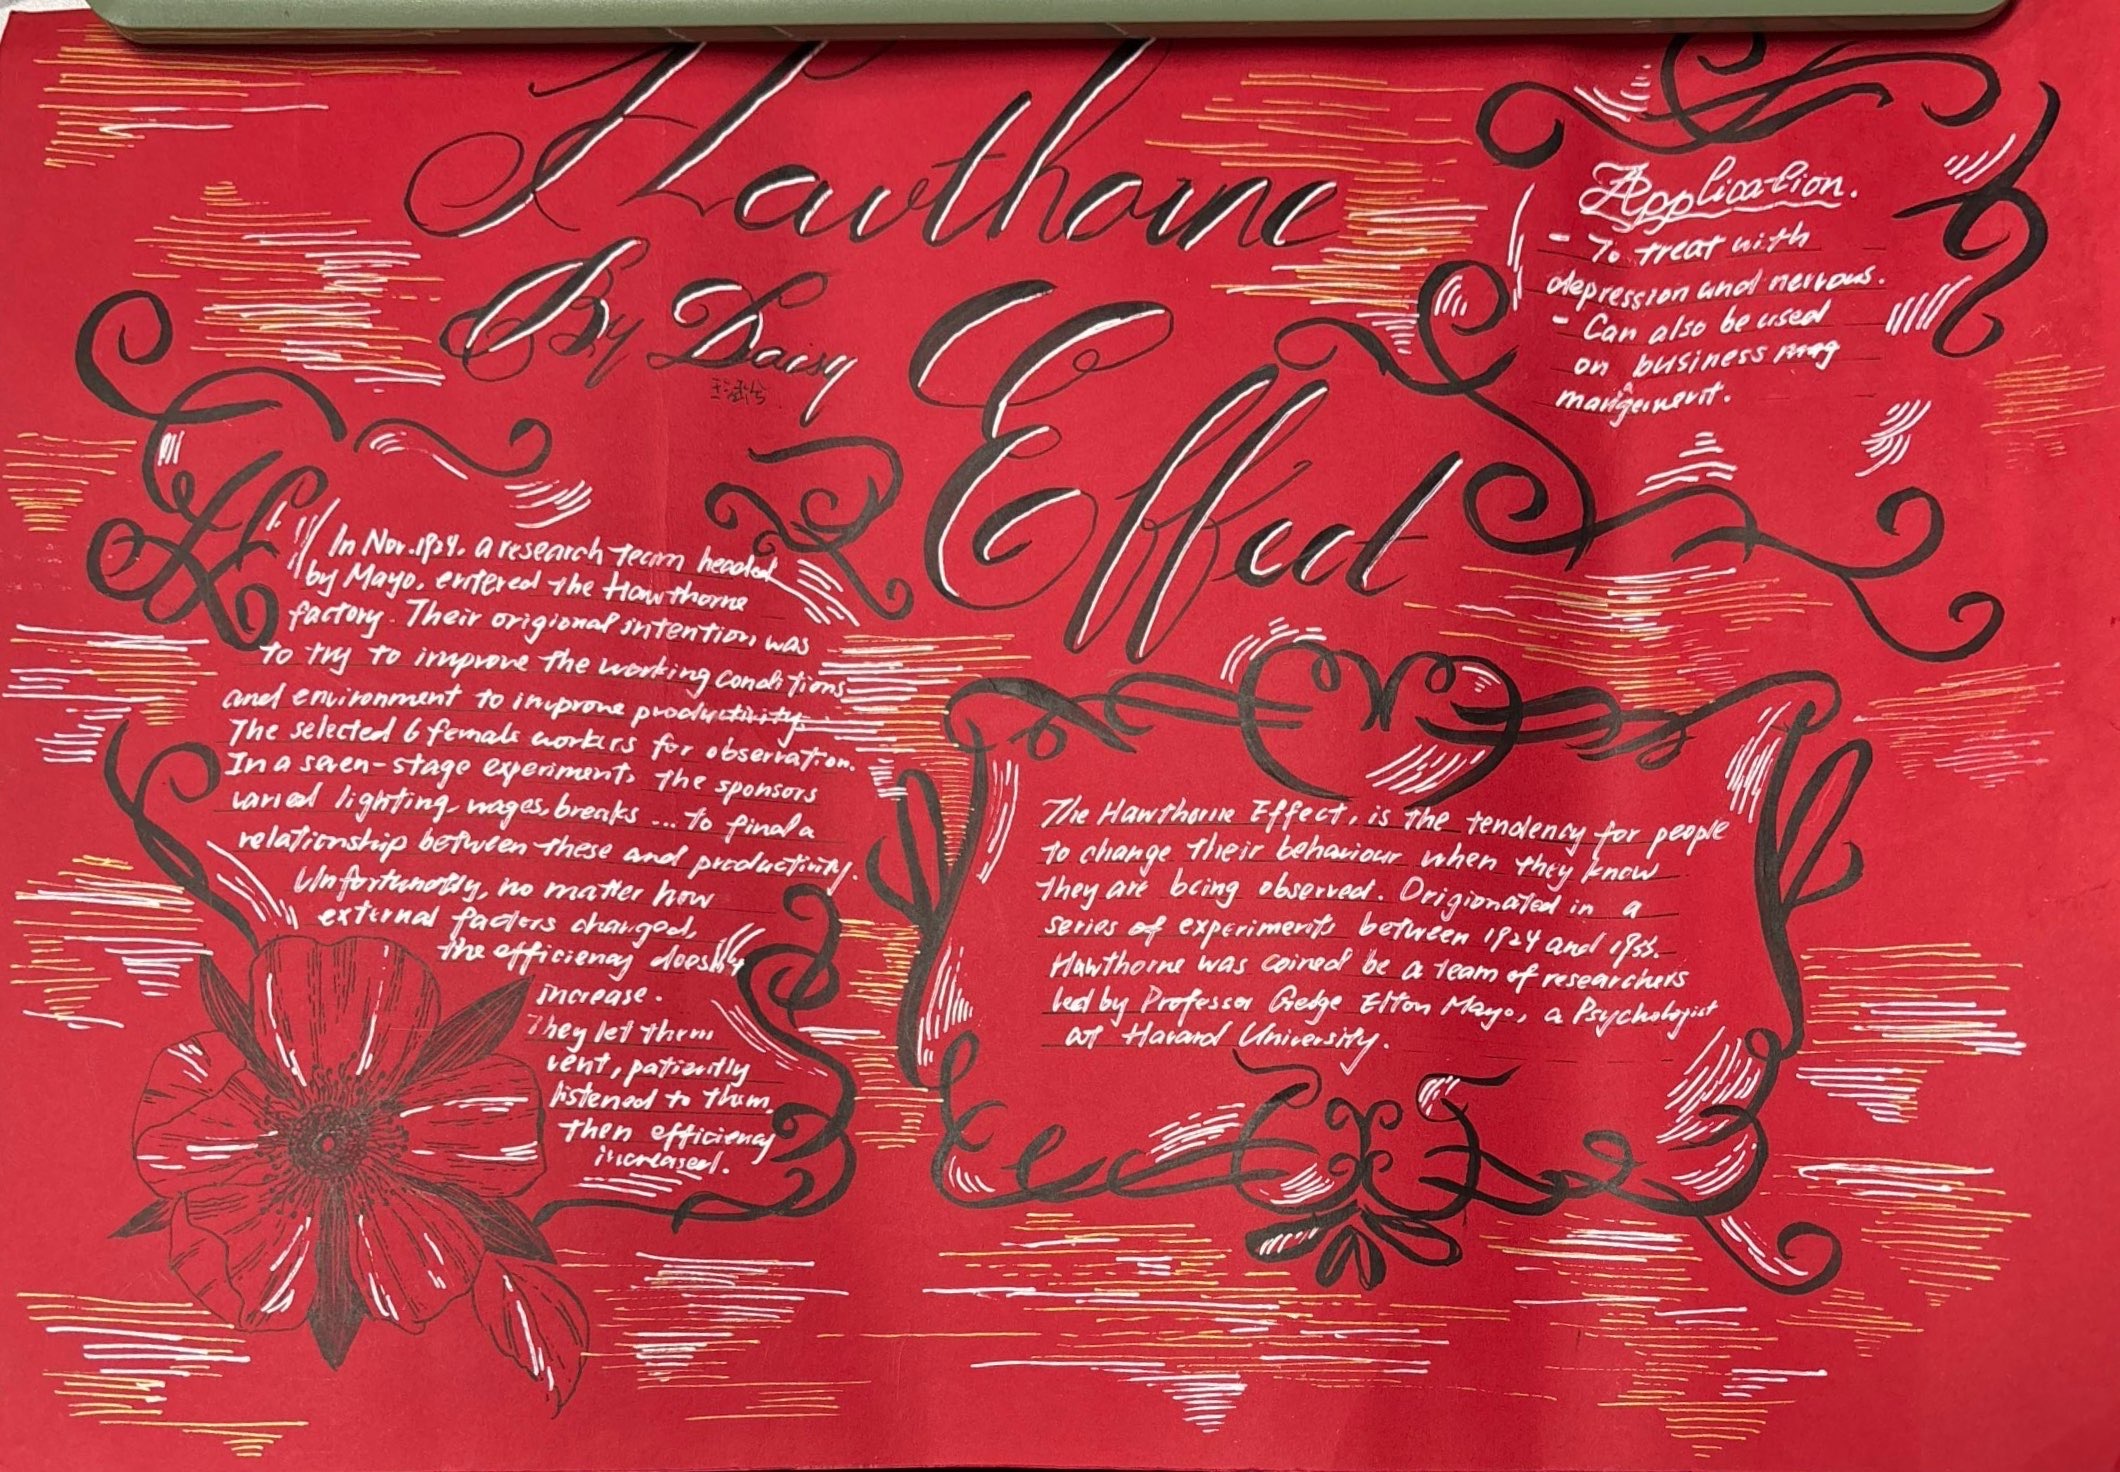 Hawthorne
Effect
By Daisy
Application.
- To treat with
depression and nervous.
- Can also be used
on business mag
mangement.
In Nov. 1924, a research team headed
by Mayo, entered the Hawthorne
factory. Their origional intention was
to try to improve the working conditions
and environment to improve productivity.
The selected 6 female workers for observation.
In a seven-stage experiment, the sponsors
varied lighting, wages, breaks ... to find a
relationship between these and productivity.
Unfortunatly, no matter how
external factors changed,
the efficiency doesn't
increase.
They let them
vent, patiently
listened to them,
then efficiency
increased.
The Hawthorne Effect, is the tendency for people
to change their behaviour when they know
they are being observed. Origionated in a
series of experiments between 1924 and
Hawthorne was coined be a team of researchers
led by Professor Gedge Elton Mayo, a Psychologist
at Havard University.